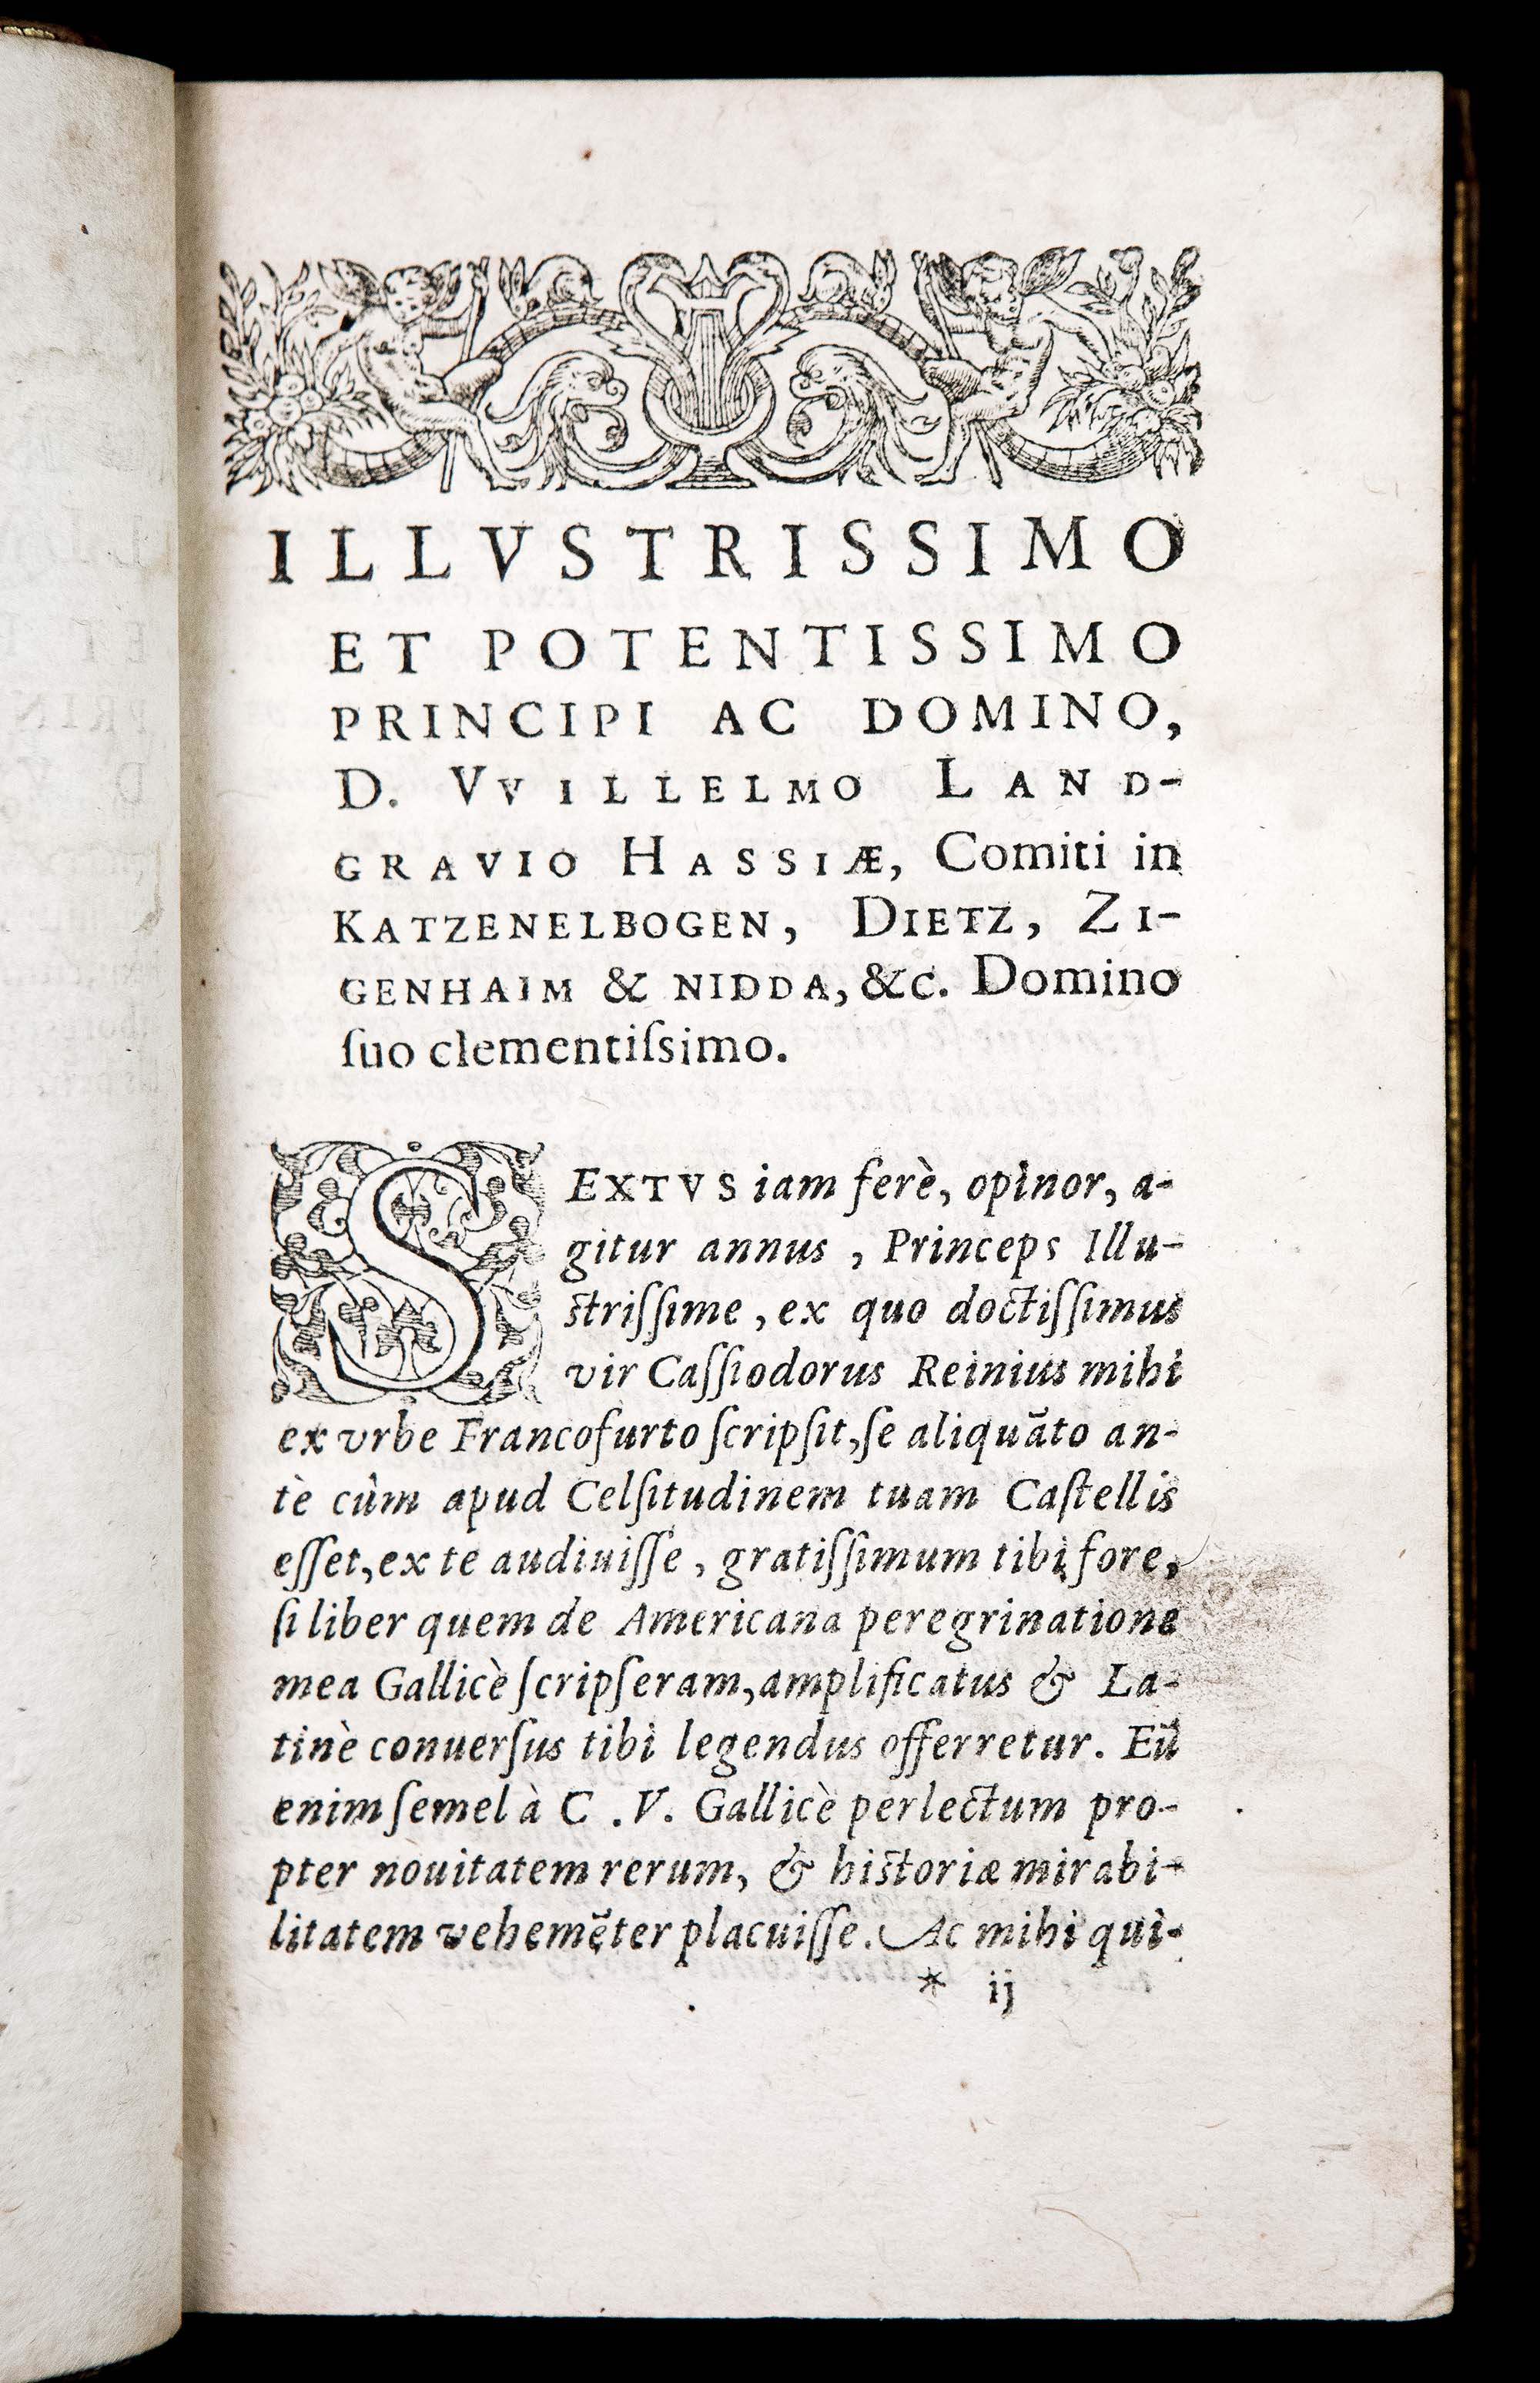 ILLVSTRISSIMO
ET POTENTISSIMO
PRINCIPI AC DOMINO,
D. VVILLELMO LAND-
GRAVIO HASSIÆ, Comiti in
KATZENELBOGEN, DIETZ, ZI-
GENHAIM & NIDDA, &c. Domino
ſuo clementiſsimo.
SEXTVS iam ferè, opinor, a-
gitur annus , Princeps Illu-
ſtriſſime , ex quo doctiſſimus
vir Caſſiodorus Reinius mihi
ex vrbe Francofurto ſcripſit, ſe aliquãto an-
tè cûm apud Celſitudinem tuam Caſtellis
eſſet, ex te audiuiſſe , gratiſſimum tibi fore,
ſi liber quem de Americana peregrinatione
mea Gallicè ſcripſeram, amplificatus & La-
tinè conuerſus tibi legendus offerretur. Eũ
enim ſemel à C .V. Gallicè perlectum pro-
pter nouitatem rerum, & hiſtoriæ mirabi-
litatem vehemẽter placuiſſe. Ac mihi qui-
* ij